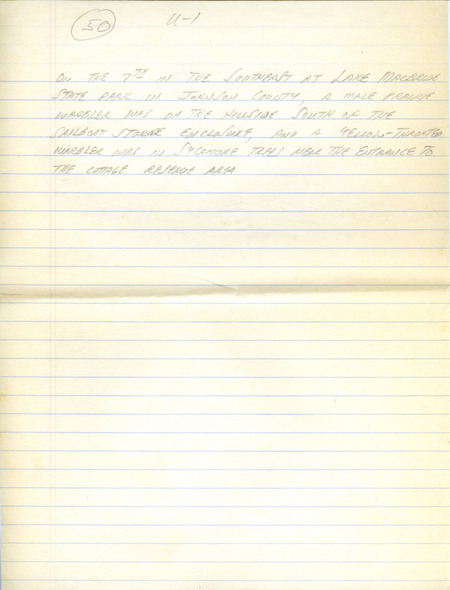 50 U-1
ON THE 7TH IN THE SOUTHEAST AT LAKE MACBRIDE
STATE PARK IN JOHNSON COUNTY, A MALE PRAIRIE
WARBLER WAS ON THE HILLSIDE SOUTH OF THE
SAILBOAT STORAGE ENCLOSURE, AND A YELLOW-THROATED
WARBLER WAS IN SYCAMORE TREES NEAR THE ENTRANCE TO
THE COTTAGE RESERVE AREA